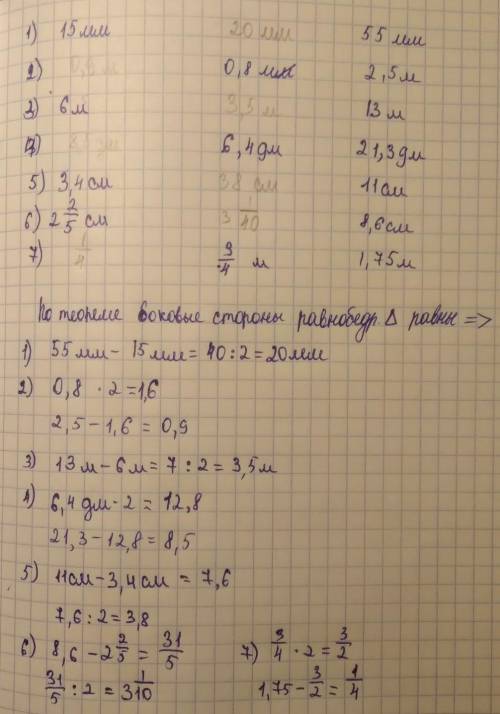 1) 15 мм 20 мм 55 мм
2) 0,9 м 0,8 мм 2,5 м
3) 6 м 3,5 м 13 м
4) 8,5 дм 6,4 дм 21,3 дм
5) 3,4 см 38 см 11 см
6) 2 2/5 см 3 1/10 8,6 см
7) 1/4 3/4 м 1,75 м
По теореме боковые стороны равнобедр. Δ равны =>
1) 55 мм - 15 мм = 40 : 2 = 20 мм
2) 0,8 · 2 = 1,6
2,5 - 1,6 = 0,9
3) 13 м - 6 м = 7 : 2 = 3,5 м
4) 6,4 дм · 2 = 12,8
21,3 - 12,8 = 8,5
5) 11 см - 3,4 см = 7,6
7,6 : 2 = 3,8
6) 8,6 - 2 2/5 = 31/5
31/5 : 2 = 3 1/10
7) 3/4 · 2 = 3/2
1,75 - 3/2 = 1/4